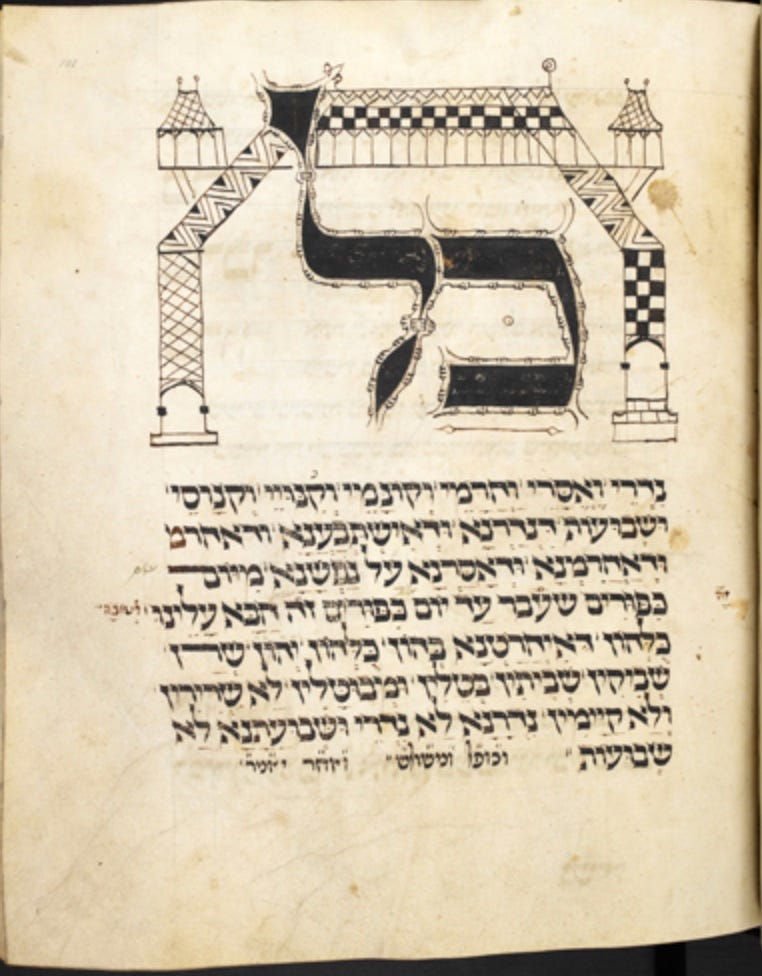 כל
נדרי ואסרי וחרמי וקונמי וקנויי וקנוסי
ושבועות דנדרנא ודאישתבענא ודאחרמ
ודאחרמנא ודאסרנא על נפשנא מיום
כפורים שעבר עד יום כפורים זה הבא עלינו
כלהון דאיחרטנא בהון כלהון יהון שרן
שביקין שביתין בטלין ומבוטלין לא שרירין
ולא קיימין נדרנא לא נדרי ושבועתנא לא
שבועות וכופל ומשלש